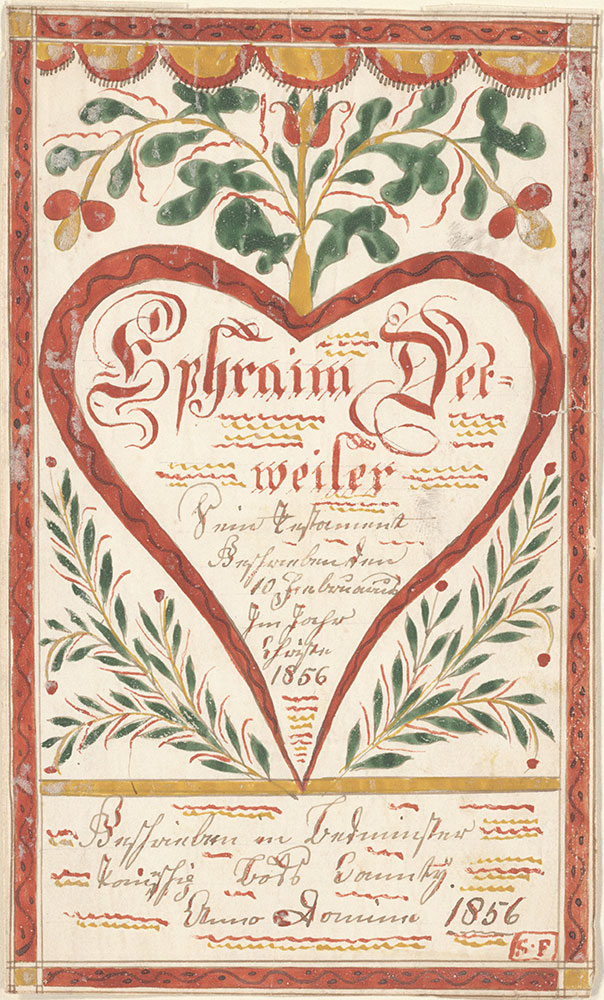 Ephraim Der-
weiler
Sein Testament
Beschrieben den
10 Februarius
Im Jahr
Christe
1856
Beschrieben in Bedminster
Taunschig Boks Caunty
Anno Domine 1856
S. F